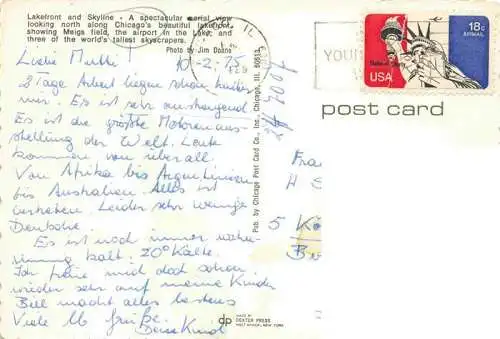 Lakefront and Skyline - A spectacular aerial view
looking north along Chicago's beautiful lakefront,
showing Meigs field, the airport in the Lake; and
three of the world's tallest skyscrapers.
Photo by Jim Doane
Liebe Mutti! 10-2-75
2 Tage Arbeit liegen schon hinter
mir. Es ist sehr anstrengend.
Es ist die größte Motorenaus-
stellung der Welt. Leute
kommen von überall.
Von Afrika bis Argentinien
bis Australien. Alles ist
vertreten. Leider sehr wenige
Deutsche.
Es ist noch immer
kalt. 20° Kälte.
Ich freue mich doch schon
wieder sehr auf meine Kinder
Bill macht alles bestens
Viele lb Grüße. Dein Kind
Pub. by Chicago Post Card Co., Inc., Chicago, Ill. 60613
IL
YOU
18¢
AIRMAIL
USA
post card
Fra
H S
5 Kö
dp
MADE BY
DEXTER PRESS
WEST NYACK, NEW YORK